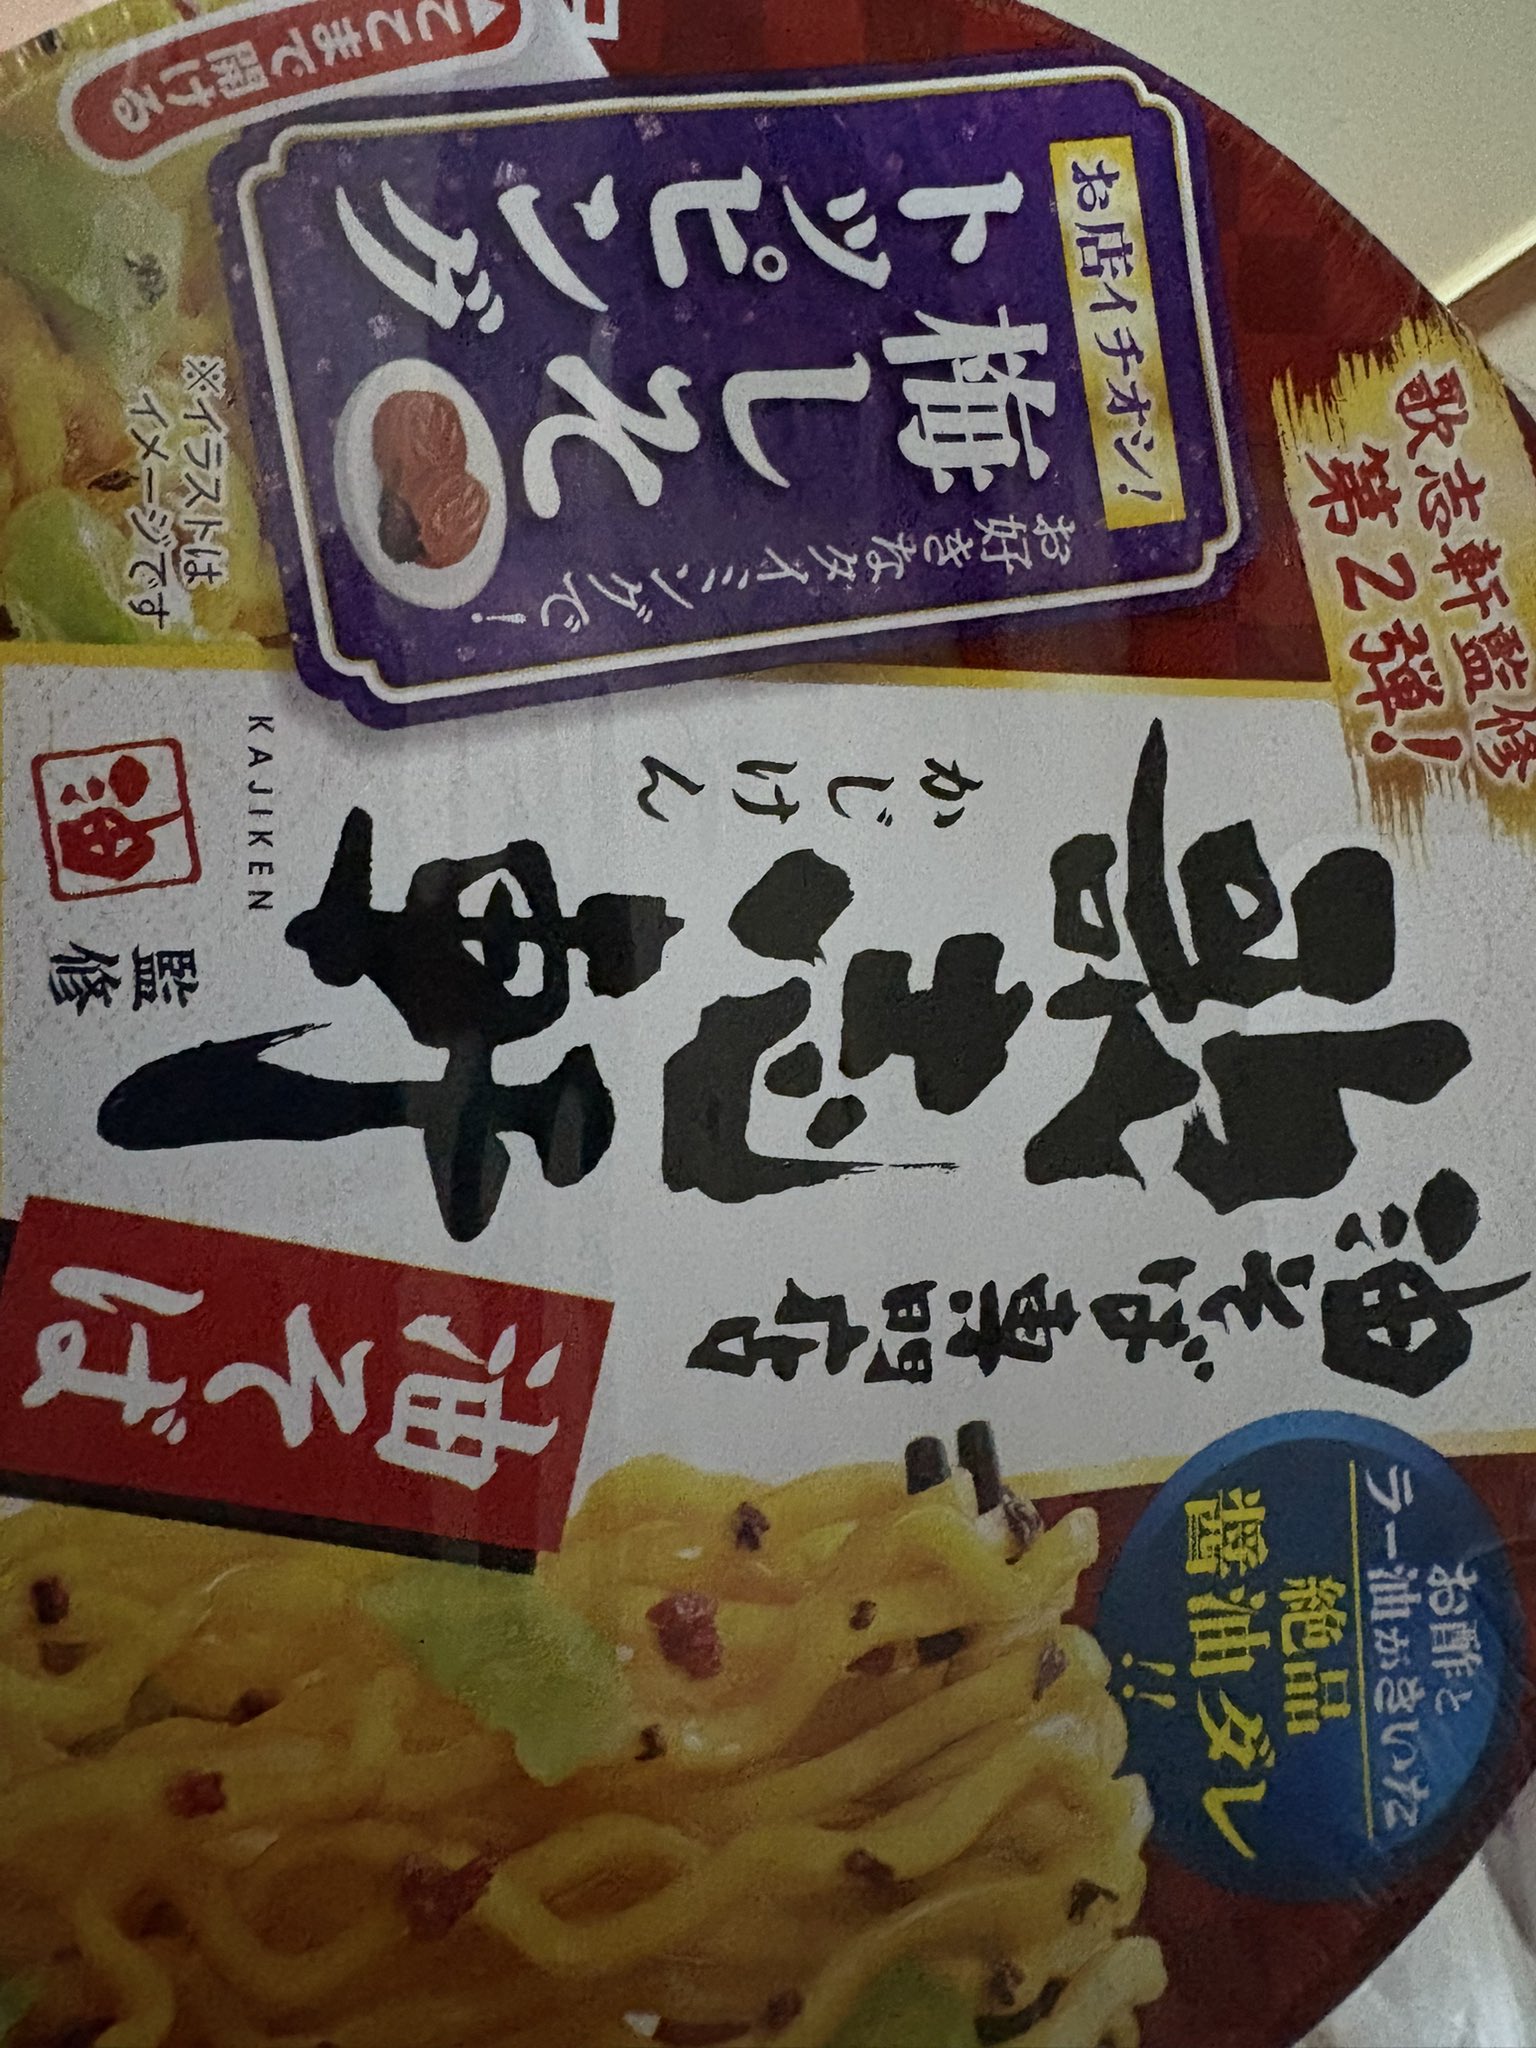 歌志軒監修
第2弾!
お店イチオシ!
梅しそ
トッピング
お好きなタイミングで!
ここまで開ける
※イラストは
イメージです
油そば専門店
歌志軒
かじけん
KAJIKEN
油
監修
油そば
お酢と
ラー油がきいた
絶品
醤油ダレ
!!